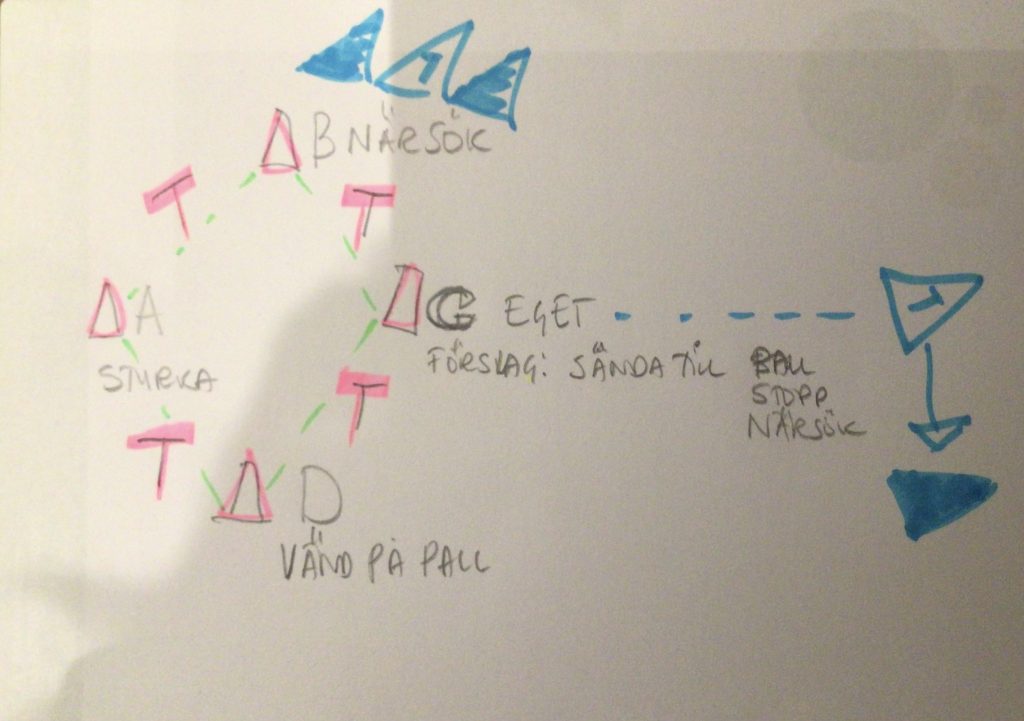 B NÄRSÖK
T
T
A
C EGET
FÖRSLAG: SÄNDA TILL
STOPP
NÄRSÖK
T
T
D
VÄND PÅ PALL